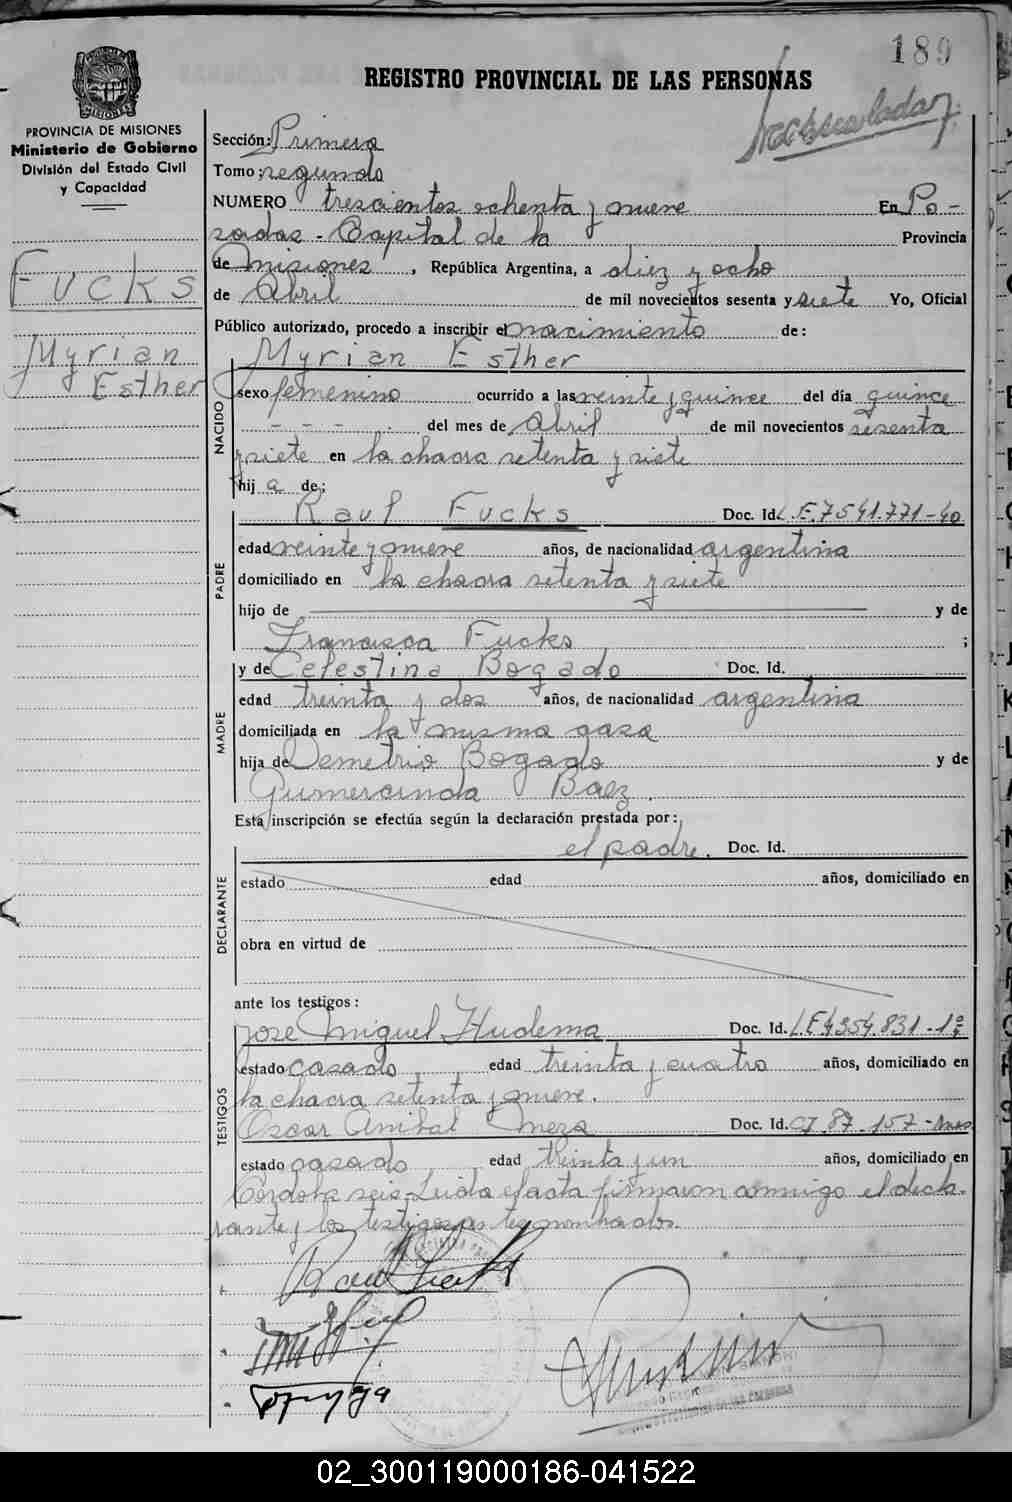 189
REGISTRO PROVINCIAL DE LAS PERSONAS
PROVINCIA DE MISIONES
Ministerio de Gobierno
División del Estado Civil
y Capacidad
Fucks
Myrian
Esther
Sección: Primera
Tomo: segundo
NUMERO trescientos ochenta y nueve En Po-
sadas - Capital de la Provincia
de Misiones, República Argentina, a diez y ocho
de Abril de mil novecientos sesenta y siete Yo, Oficial
Público autorizado, procedo a inscribir el nacimiento de:
Myrian Esther
NACIDO
sexo femenino ocurrido a las veinte y quince del día quince
- - - - del mes de Abril de mil novecientos sesenta
y siete en la chacra setenta y siete
hij a de:
Raul Fucks Doc. Id. L.E. 7541.771-40
PADRE
edad veinte y nueve años, de nacionalidad argentina
domiciliado en la chacra setenta y siete
hijo de y de
Francisca Fucks ;
y de Celestina Bogado Doc. Id.
MADRE
edad treinta y dos años, de nacionalidad argentina
domiciliada en la misma casa
hija de Demetrio Bogado y de
Gumercinda Baez.
Esta inscripción se efectúa según la declaración prestada por:
el padre. Doc. Id.
DECLARANTE
estado edad años, domiciliado en
obra en virtud de
ante los testigos:
Jose Miguel Hudema Doc. Id. L.E 4354.831-1ª
TESTIGOS
estado casado edad treinta y cuatro años, domiciliado en
la chacra setenta y nueve.
Oscar Anibal Meza Doc. Id. CI. 87.157-Mns
estado casado edad treinta y un años, domiciliado en
Cordoba seis. Leida el acta firmaron conmigo el decla-
rante y los testigos
02_300119000186-041522